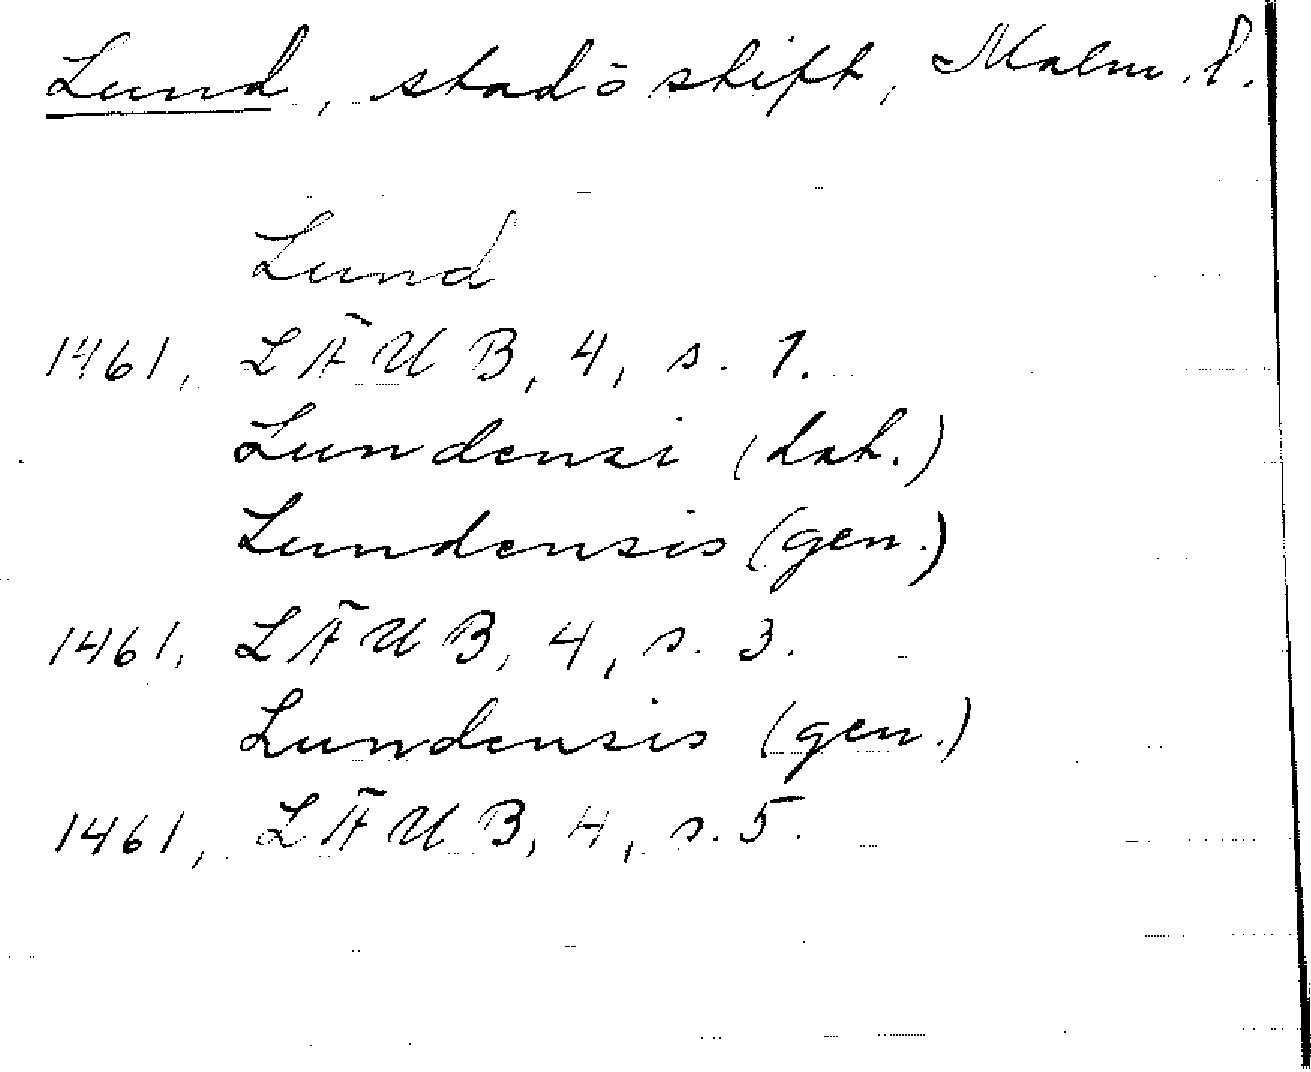 Lund, stad o stift, Malm. l.
Lund
1461, LÄUB, 4, s. 1.
Lundensi (dat.)
Lundensis (gen.)
1461, LÄUB, 4, s. 3.
Lundensis (gen.)
1461, LÄUB, 4, s. 5.